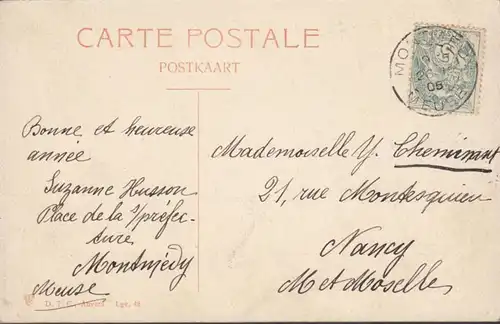 CARTE POSTALE
POSTKAART
MEUSE
05
Bonne et heureuse
année
Suzanne Husson
Place de la s/préfec-
ture
Montmédy
Meuse
Mademoiselle Y. Cheminant
21, rue Montesquieu
Nancy
M et Moselle
D. T. C., Anvers Lgr. 48